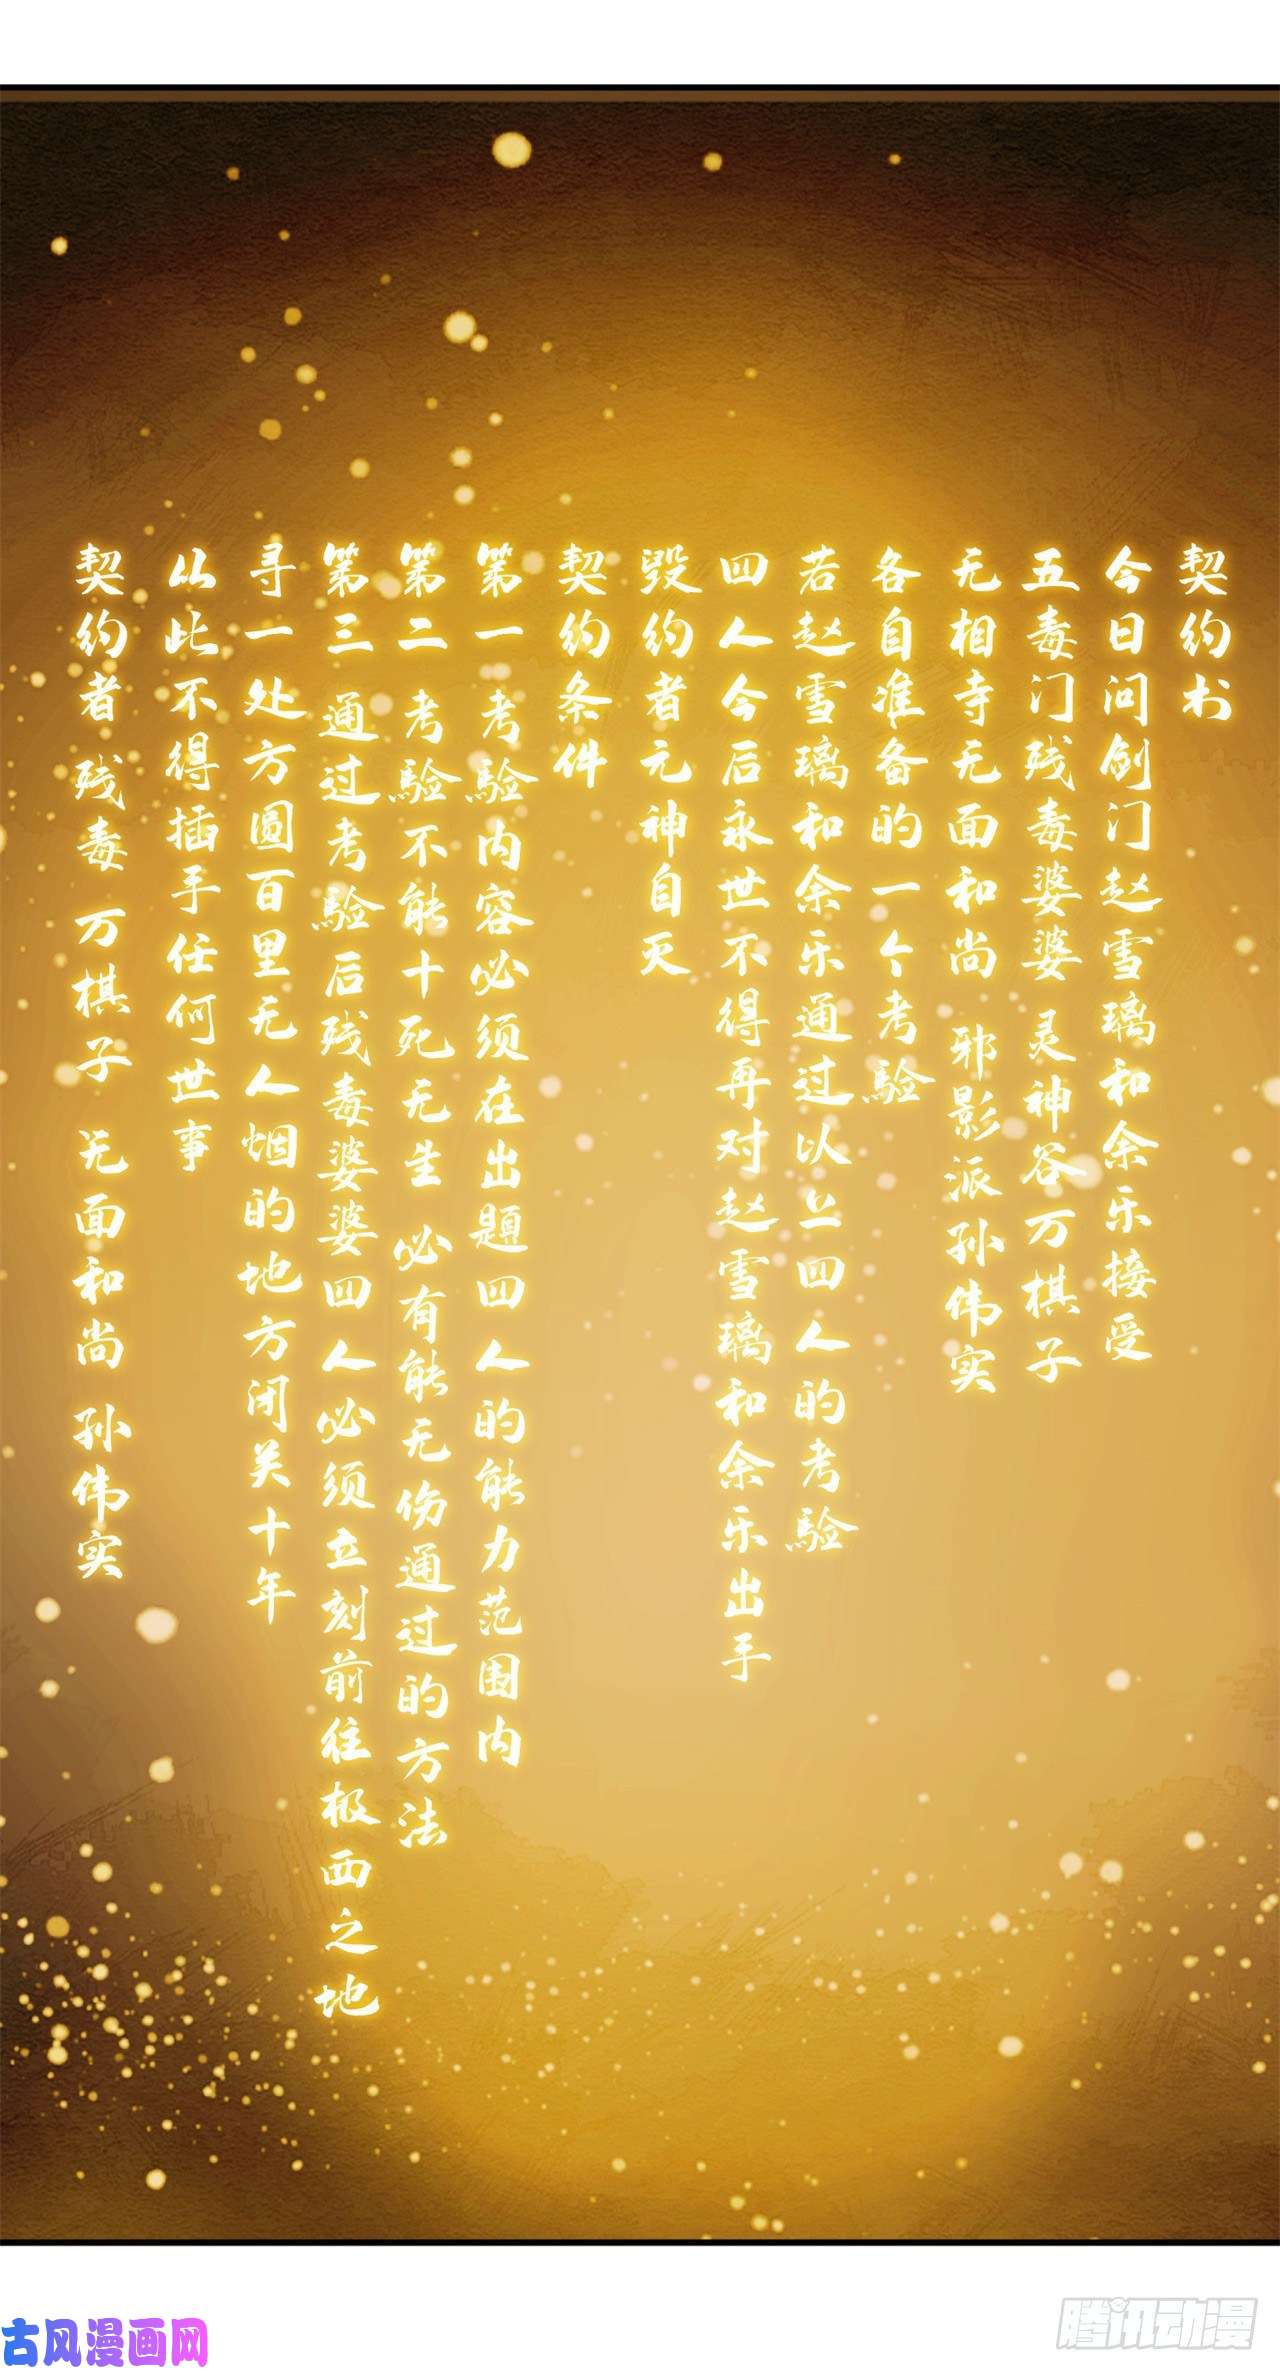 契约书
今日问剑门赵雪璃和余乐接受
五毒门残毒婆婆 灵神谷万棋子
无相寺无面和尚 邪影派孙伟实
各自准备的一个考驗
若赵雪璃和余乐通过以上四人的考驗
四人今后永世不得再对赵雪璃和余乐出手
毁约者元神自灭
契约条件
第一 考驗内容必须在出題四人的能力范围内
第二 考驗不能十死无生 必有能无伤通过的方法
第三 通过考驗后残毒婆婆四人必须立刻前往极西之地
寻一处方圆百里无人烟的地方闭关十年
从此不得插手任何世事
契约者 残毒 万棋子 无面和尚 孙伟实
古风漫画网
腾讯动漫